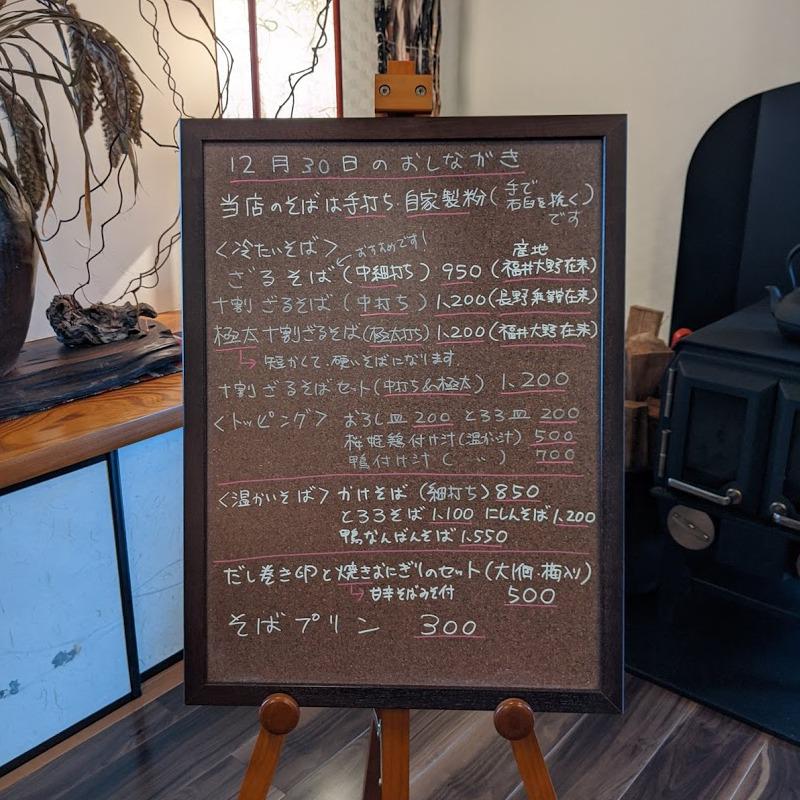 12月30日のおしながき
当店のそばは手打ち・自家製粉(手で石臼を挽くです)
<冷たいそば> おすすめです! 産地
ざるそば(中細打ち) 950 (福井大野在来)
十割ざるそば(中打ち) 1,200 (長野乗鞍在来)
極太十割ざるそば(極太打ち) 1,200 (福井大野在来)
短かくて、硬いそばになります
十割ざるそばセット(中打ち&極太) 1,200
<トッピング> おろし皿 200 とろろ皿 200
桜姫鶏付け汁(温か汁) 500
鴨付け汁(〃) 700
<温かいそば> かけそば(細打ち) 850
とろろそば 1,100 にしんそば 1,200
鴨なんばんそば 1,550
だし巻き卵と焼きおにぎりのセット(大1個・梅入り)
甘辛そばみそ付 500
そばプリン 300